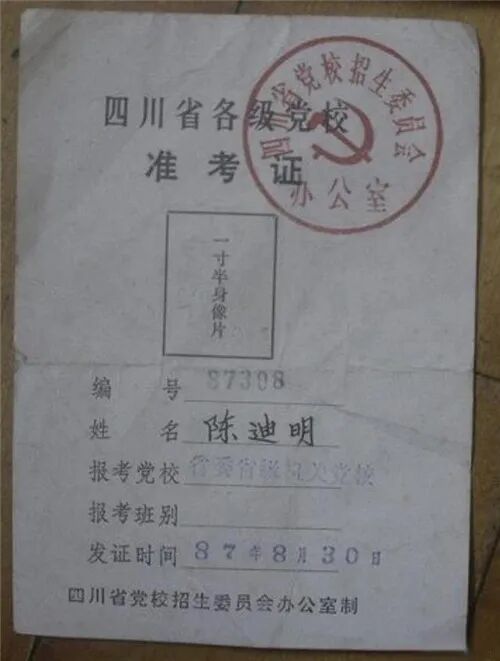 四川省各级党校
准考证
四川省党校招生委员会
办公室
一寸半身像片
编号 87308
姓名 陈迪明
报考党校 省委省级机关党校
报考班别
发证时间 87年8月30日
四川省党校招生委员会办公室制